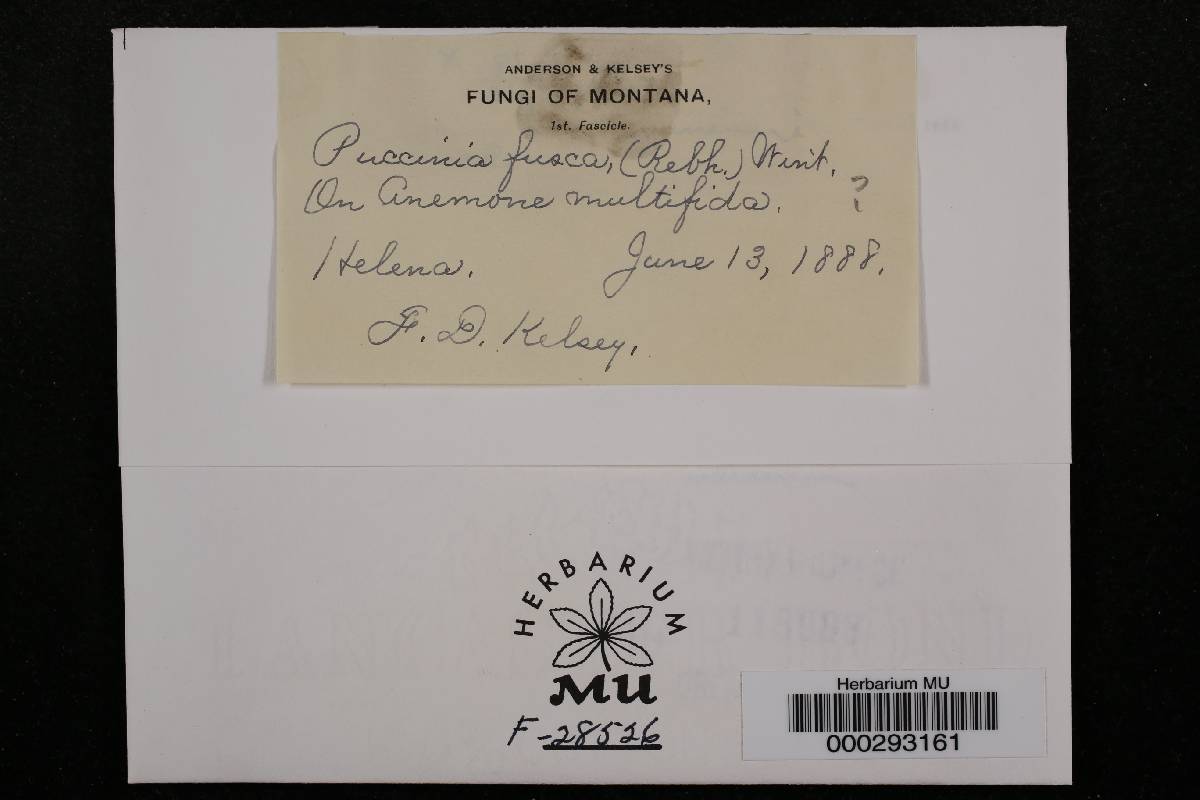 ANDERSON & KELSEY'S
FUNGI OF MONTANA,
1st. Fascicle.
Puccinia fusca, (Rebh.) Wint.
On Anemone multifida. ?
Helena. June 13, 1888.
F. D. Kelsey.
HERBARIUM
MU
F-28526
Herbarium MU
000293161